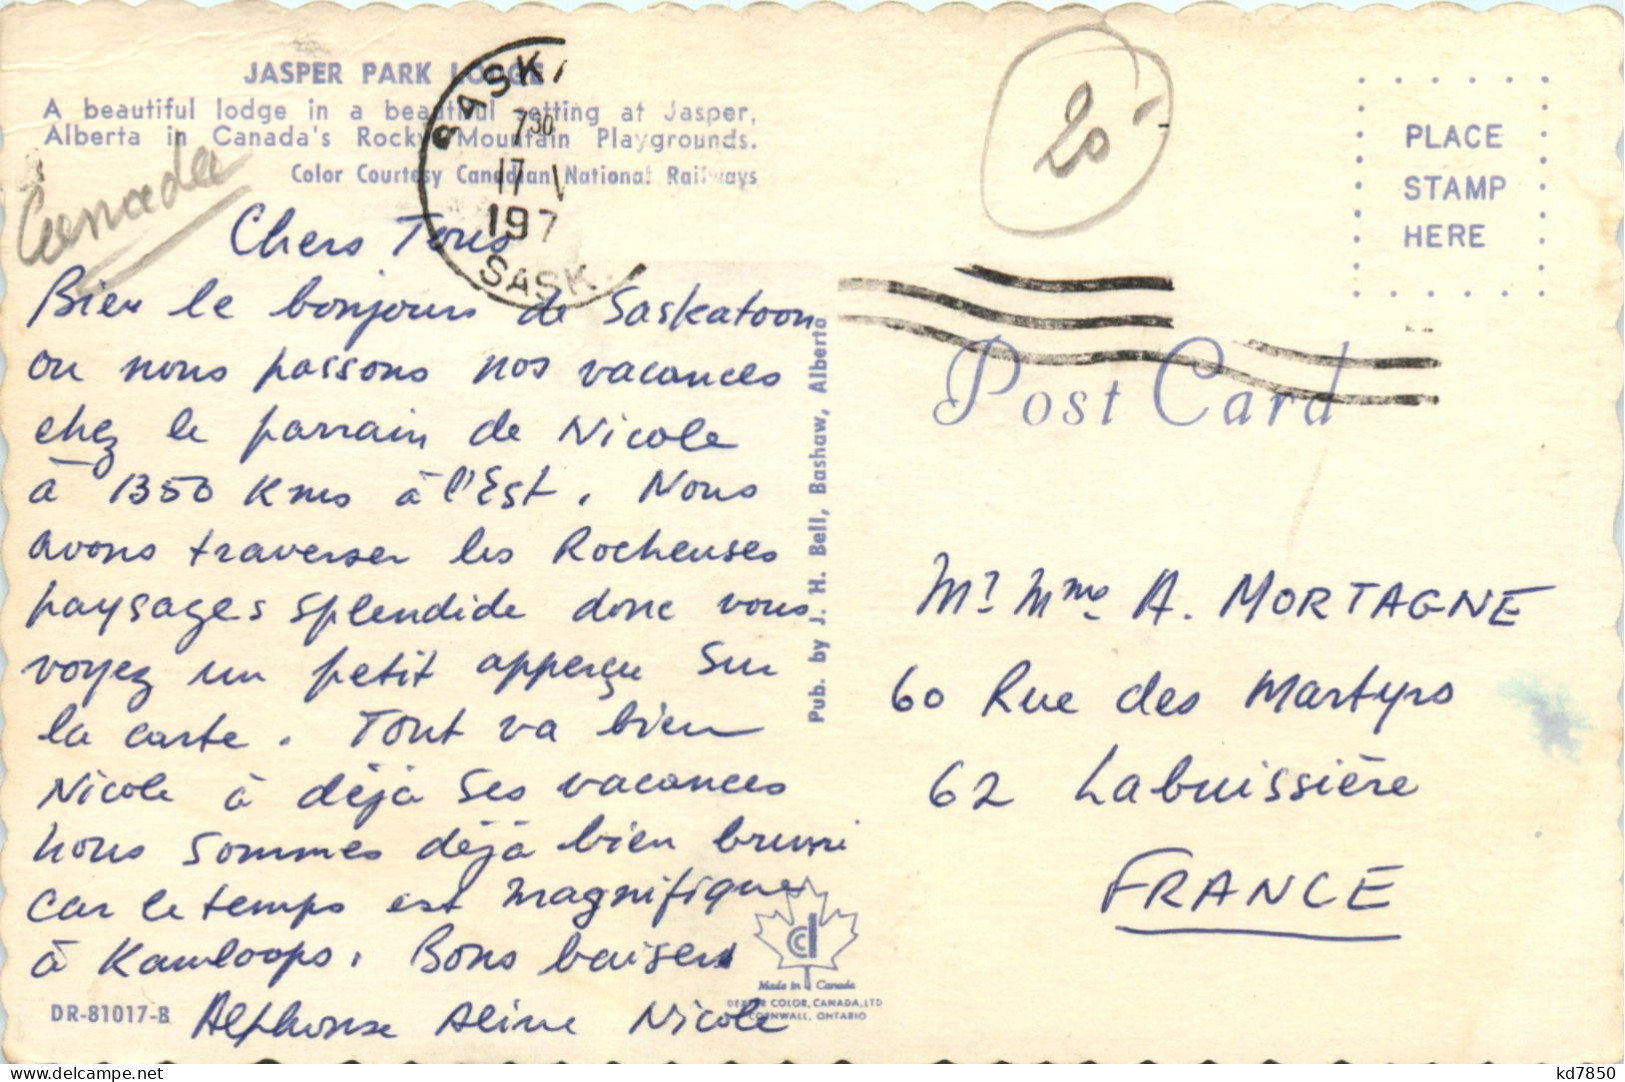 JASPER PARK LODGE
A beautiful lodge in a beautiful setting at Jasper,
Alberta in Canada's Rocky Mountain Playgrounds.
Color Courtesy Canadian National Railways
Canada
SASK
7 30
17 V
197
SASK.
20
PLACE
STAMP
HERE
Post Card
Chers Tous
Bien le bonjour de Saskatoon
ou nous passons nos vacances
chez le parrain de Nicole
à 1350 Kms à l'Est. Nous
avons traverser les Rocheuses
paysages splendide donc vous
voyez un petit apperçu sur
la carte. Tout va bien
Nicole à déjà ses vacances
nous sommes déjà bien bruni
car le temps est magnifique
à Kamloops. Bons baisers
Alphonse Aline Nicole
Pub. by J. H. Bell, Bashaw, Alberta
Mr Mme A. MORTAGNE
60 Rue des Martyrs
62 Labuissière
FRANCE
Made in Canada
COLOR, CANADA, LTD
CORNWALL, ONTARIO
DR-81017-B
the-collection.net
kd7850